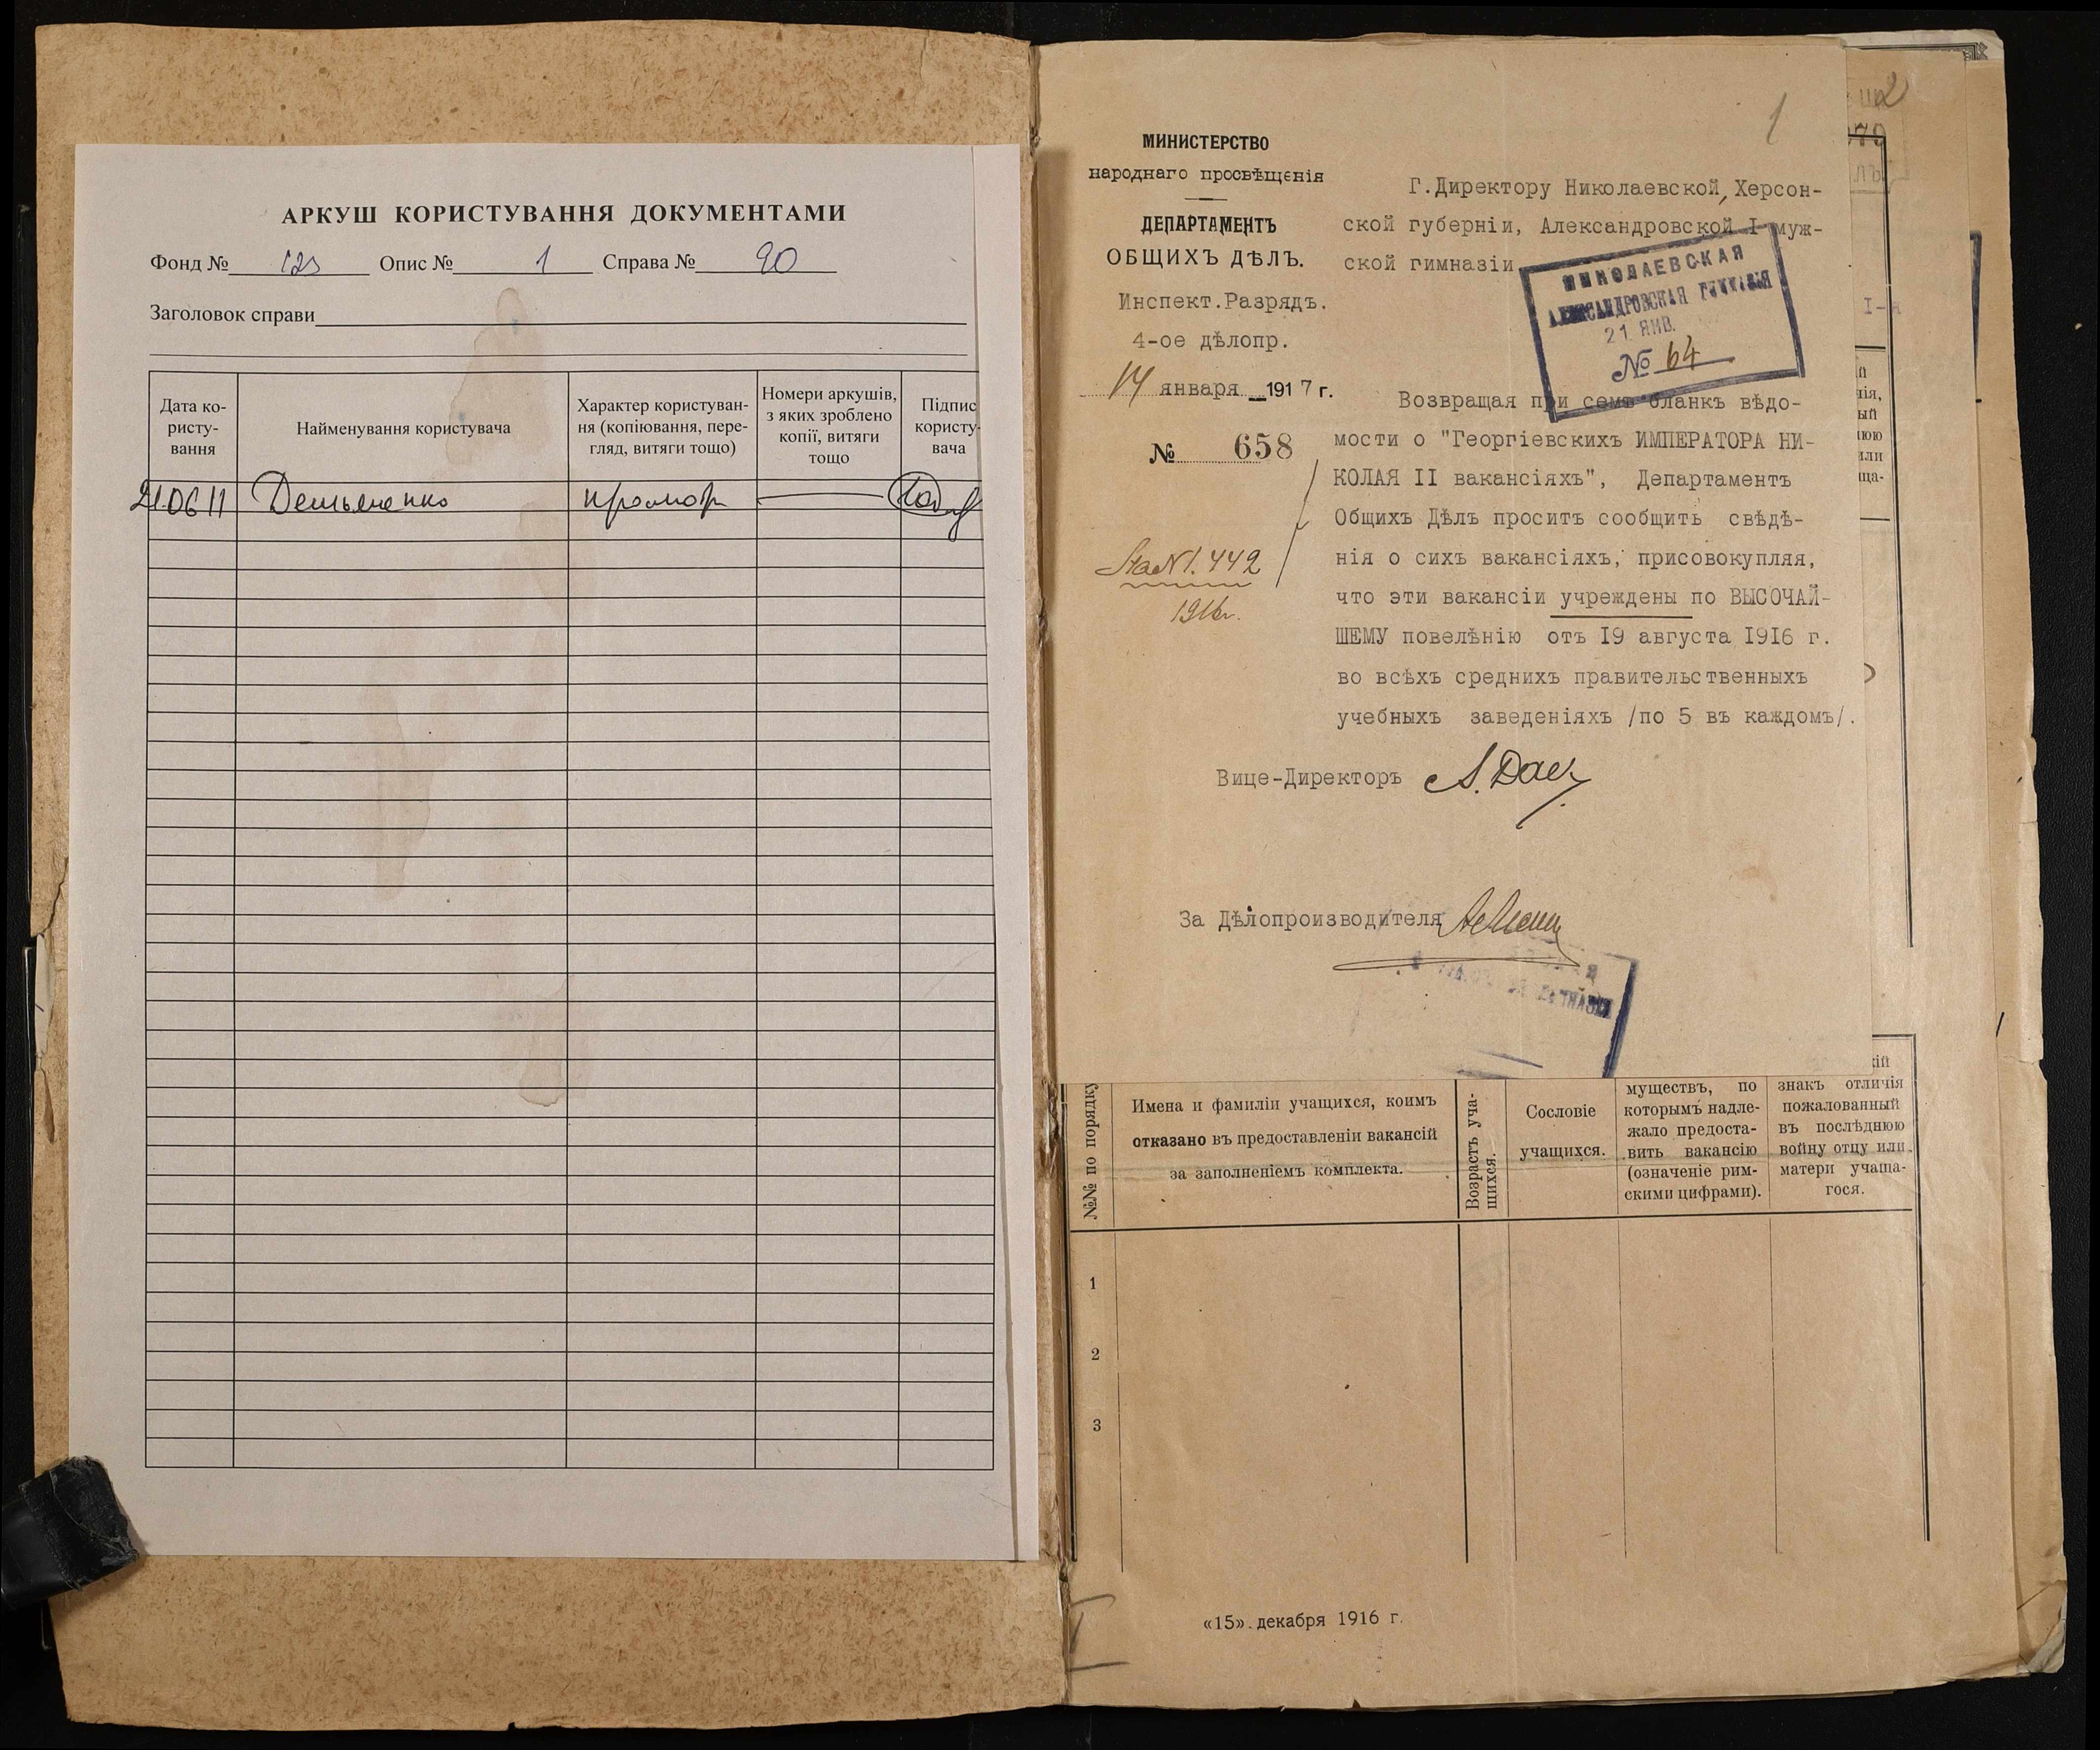 АРКУШ КОРИСТУВАННЯ ДОКУМЕНТАМИ
Фонд № 123 Опис № 1 Справа № 90
Заголовок справи
Дата ко-
ристу-
вання
Найменування користувача
Характер користуван-
ня (копіювання, пере-
гляд, витяги тощо)
Номери аркушів,
з яких зроблено
копії, витяги
тощо
Підпис
користу-
вача
21.06 11
1
МИНИСТЕРСТВО
народнаго просвѣщенія
ДЕПАРТАМЕНТЪ
ОБЩИХЪ ДѢЛЪ.
Инспект.Разрядъ.
4-ое дѣлопр.
14 января 1917 г.
№ 658
442
1916г.
Г.Директору Николаевской, Херсон-
ской губерніи, Александровской I муж-
ской гимназіи
НИКОЛАЕВСКАЯ
АЛЕКСАНДРОВСКАЯ ГИМНАЗІЯ
21 ЯНВ.
№ 64
Возвращая при семъ бланкъ вѣдо-
мости о "Георгіевскихъ ИМПЕРАТОРА НИ-
КОЛАЯ II вакансіяхъ", Департаментъ
Общихъ Дѣлъ проситъ сообщить свѣдѣ-
нія о сихъ вакансіяхъ, присовокупляя,
что эти вакансіи учреждены по ВЫСОЧАЙ-
ШЕМУ повелѣнію отъ 19 августа 1916 г.
во всѣхъ среднихъ правительственныхъ
учебныхъ заведеніяхъ /по 5 въ каждомъ/.
Вице-Директоръ
За Дѣлопроизводителя
№№ по порядку
Имена и фамиліи учащихся, коимъ
отказано въ предоставленіи вакансій
за заполненіемъ комплекта.
Возрастъ уча-
щихся.
Сословіе
учащихся.
муществъ, по
которымъ надле-
жало предоста-
вить вакансію
(означеніе рим-
скими цифрами).
знакъ отличія
пожалованный
въ послѣднюю
войну отцу или
матери учаща-
гося.
1
2
3
«15» декабря 1916 г.